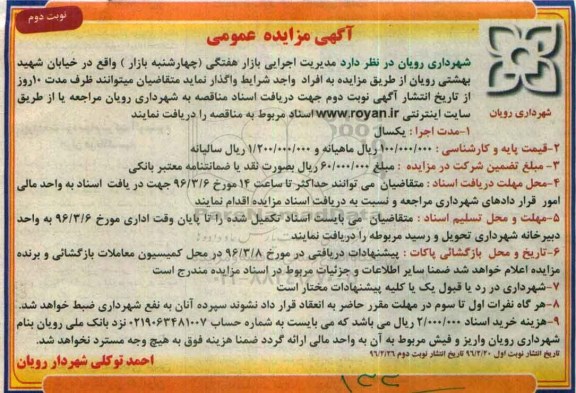 نوبت دوم
آگهی مزایده عمومی
شهرداری رویان
شهرداری رویان در نظر دارد مدیریت اجرایی بازار هفتگی (چهارشنبه بازار ) واقع در خیابان شهید
بهشتی رویان از طریق مزایده به افراد واجد شرایط واگذار نماید متقاضیان میتوانند ظرف مدت ۱۰روز
از تاریخ انتشار آگهی نوبت دوم جهت دریافت اسناد مناقصه به شهرداری رویان مراجعه یا از طریق
سایت اینترنتی www.royan.ir اسناد مربوط به مناقصه را دریافت نمایند
۱-مدت اجرا : یکسال
۲-قیمت پایه و کارشناسی : ۱۰۰/۰۰۰/۰۰۰ ریال ماهیانه و ۱/۲۰۰/۰۰۰/۰۰۰ ریال سالیانه
۳- مبلغ تضمین شرکت در مزایده : مبلغ ۶۰/۰۰۰/۰۰۰ ریال بصورت نقد یا ضمانتنامه معتبر بانکی
۴-محل مهلت دریافت اسناد : متقاضیان می توانند حداکثر تا ساعت ۱۴ مورخ ۹۶/۳/۶ جهت در یافت اسناد به واحد مالی
امور قرار دادهای شهرداری مراجعه و نسبت به دریافت اسناد مزایده اقدام نمایند
۵-مهلت و محل تسلیم اسناد : متقاضیان می بایست اسناد تکمیل شده را تا پایان وقت اداری مورخ ۹۶/۳/۶ به واحد
دبیرخانه شهرداری تحویل و رسید مربوطه را دریافت نمایند
۶-تاریخ و محل بازگشائی پاکات : پیشنهادات دریافتی در مورخ ۹۶/۳/۸ در محل کمیسیون معاملات بازگشائی و برنده
مزایده اعلام خواهد شد ضمنا سایر اطلاعات و جزئیات مربوط در اسناد مزایده مندرج است
۷-شهرداری در رد یا قبول یک یا کلیه پیشنهادات مختار است
۸-هر گاه نفرات اول تا سوم در مهلت مقرر حاضر به انعقاد قرار داد نشوند سپرده آنان به نفع شهرداری ضبط خواهد شد.
۹-هزینه خرید اسناد ۲/۰۰۰/۰۰۰ ریال می باشد که می بایست به شماره حساب ۰۲۱۹۰۶۳۴۸۱۰۰۷ نزد بانک ملی رویان بنام
شهرداری رویان واریز و فیش مربوط به آن به واحد مالی ارائه گردد ضمنا هزینه فوق به هیچ وجه مسترد نخواهد شد.
تاریخ انتشار نوبت اول ۹۶/۲/۲۰ تاریخ انتشار نوبت دوم ۹۶/۲/۲۶
احمد توکلی شهردار رویان